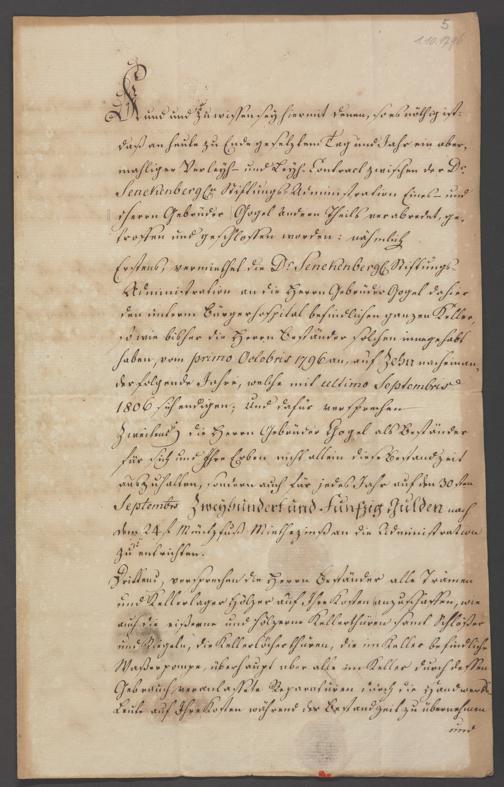 5
1.10.1796
Kund und zu wissen sey hiermit denen, so es nöthig ist:
daß an heute zu Ende gesetztem Tag und Jahr ein aber-
mahliger Verleyh- und Leyh-Contract zwischen der Dr.
Senckenbergl. Stiftungs-Administration Eines- und
Herrn Gebrüder Gogel andern Theils verabredet, ge-
troffen und geschlossen worden: nähmlich
Erstens, vermiethet die Dr. Senckenbergl. Stiftungs-
Administration an die Herrn Gebrüder Gogel dahier
den unterm Bürgerhospital befindlichen ganzen Keller,
so wie bisher die Herrn Beständer solchen innegehabt
haben, vom primo Octobris 1796 an, auf Zehn nacheinan-
der folgende Jahre, welche mit ultimo Septembris
1806 sich endigen; Und dafür versprechen
Zweitens die Herrn Gebrüder Gogel als Beständer
für sich und Ihre Erben nicht allein diese Bestandzeit
auszuhalten, sondern auch für jedes Jahr auf den 30sten
Septembris Zweyhundert und Funfzig Gulden nach
dem 24 f Müntzfuß Miethezinß an die Administration
zu entrichten.
Drittens, versprechen die Herrn Beständer alle Trämen
und Kellerlager Hölzer auf Ihre Kosten anzuschaffen, wie
auch die eißerne und hölzerne Kellerthüren samt Schlößer
und Riegeln, die Kellerlöcherthüren, die im Keller befindliche
Waßerpompe, überhaupt aber alle im Keller durch dessen
Gebrauch veranlaßte Reparaturen durch die Handwercks-
Leute auf Ihre Kosten während der Bestandzeit zu übernehmen
und